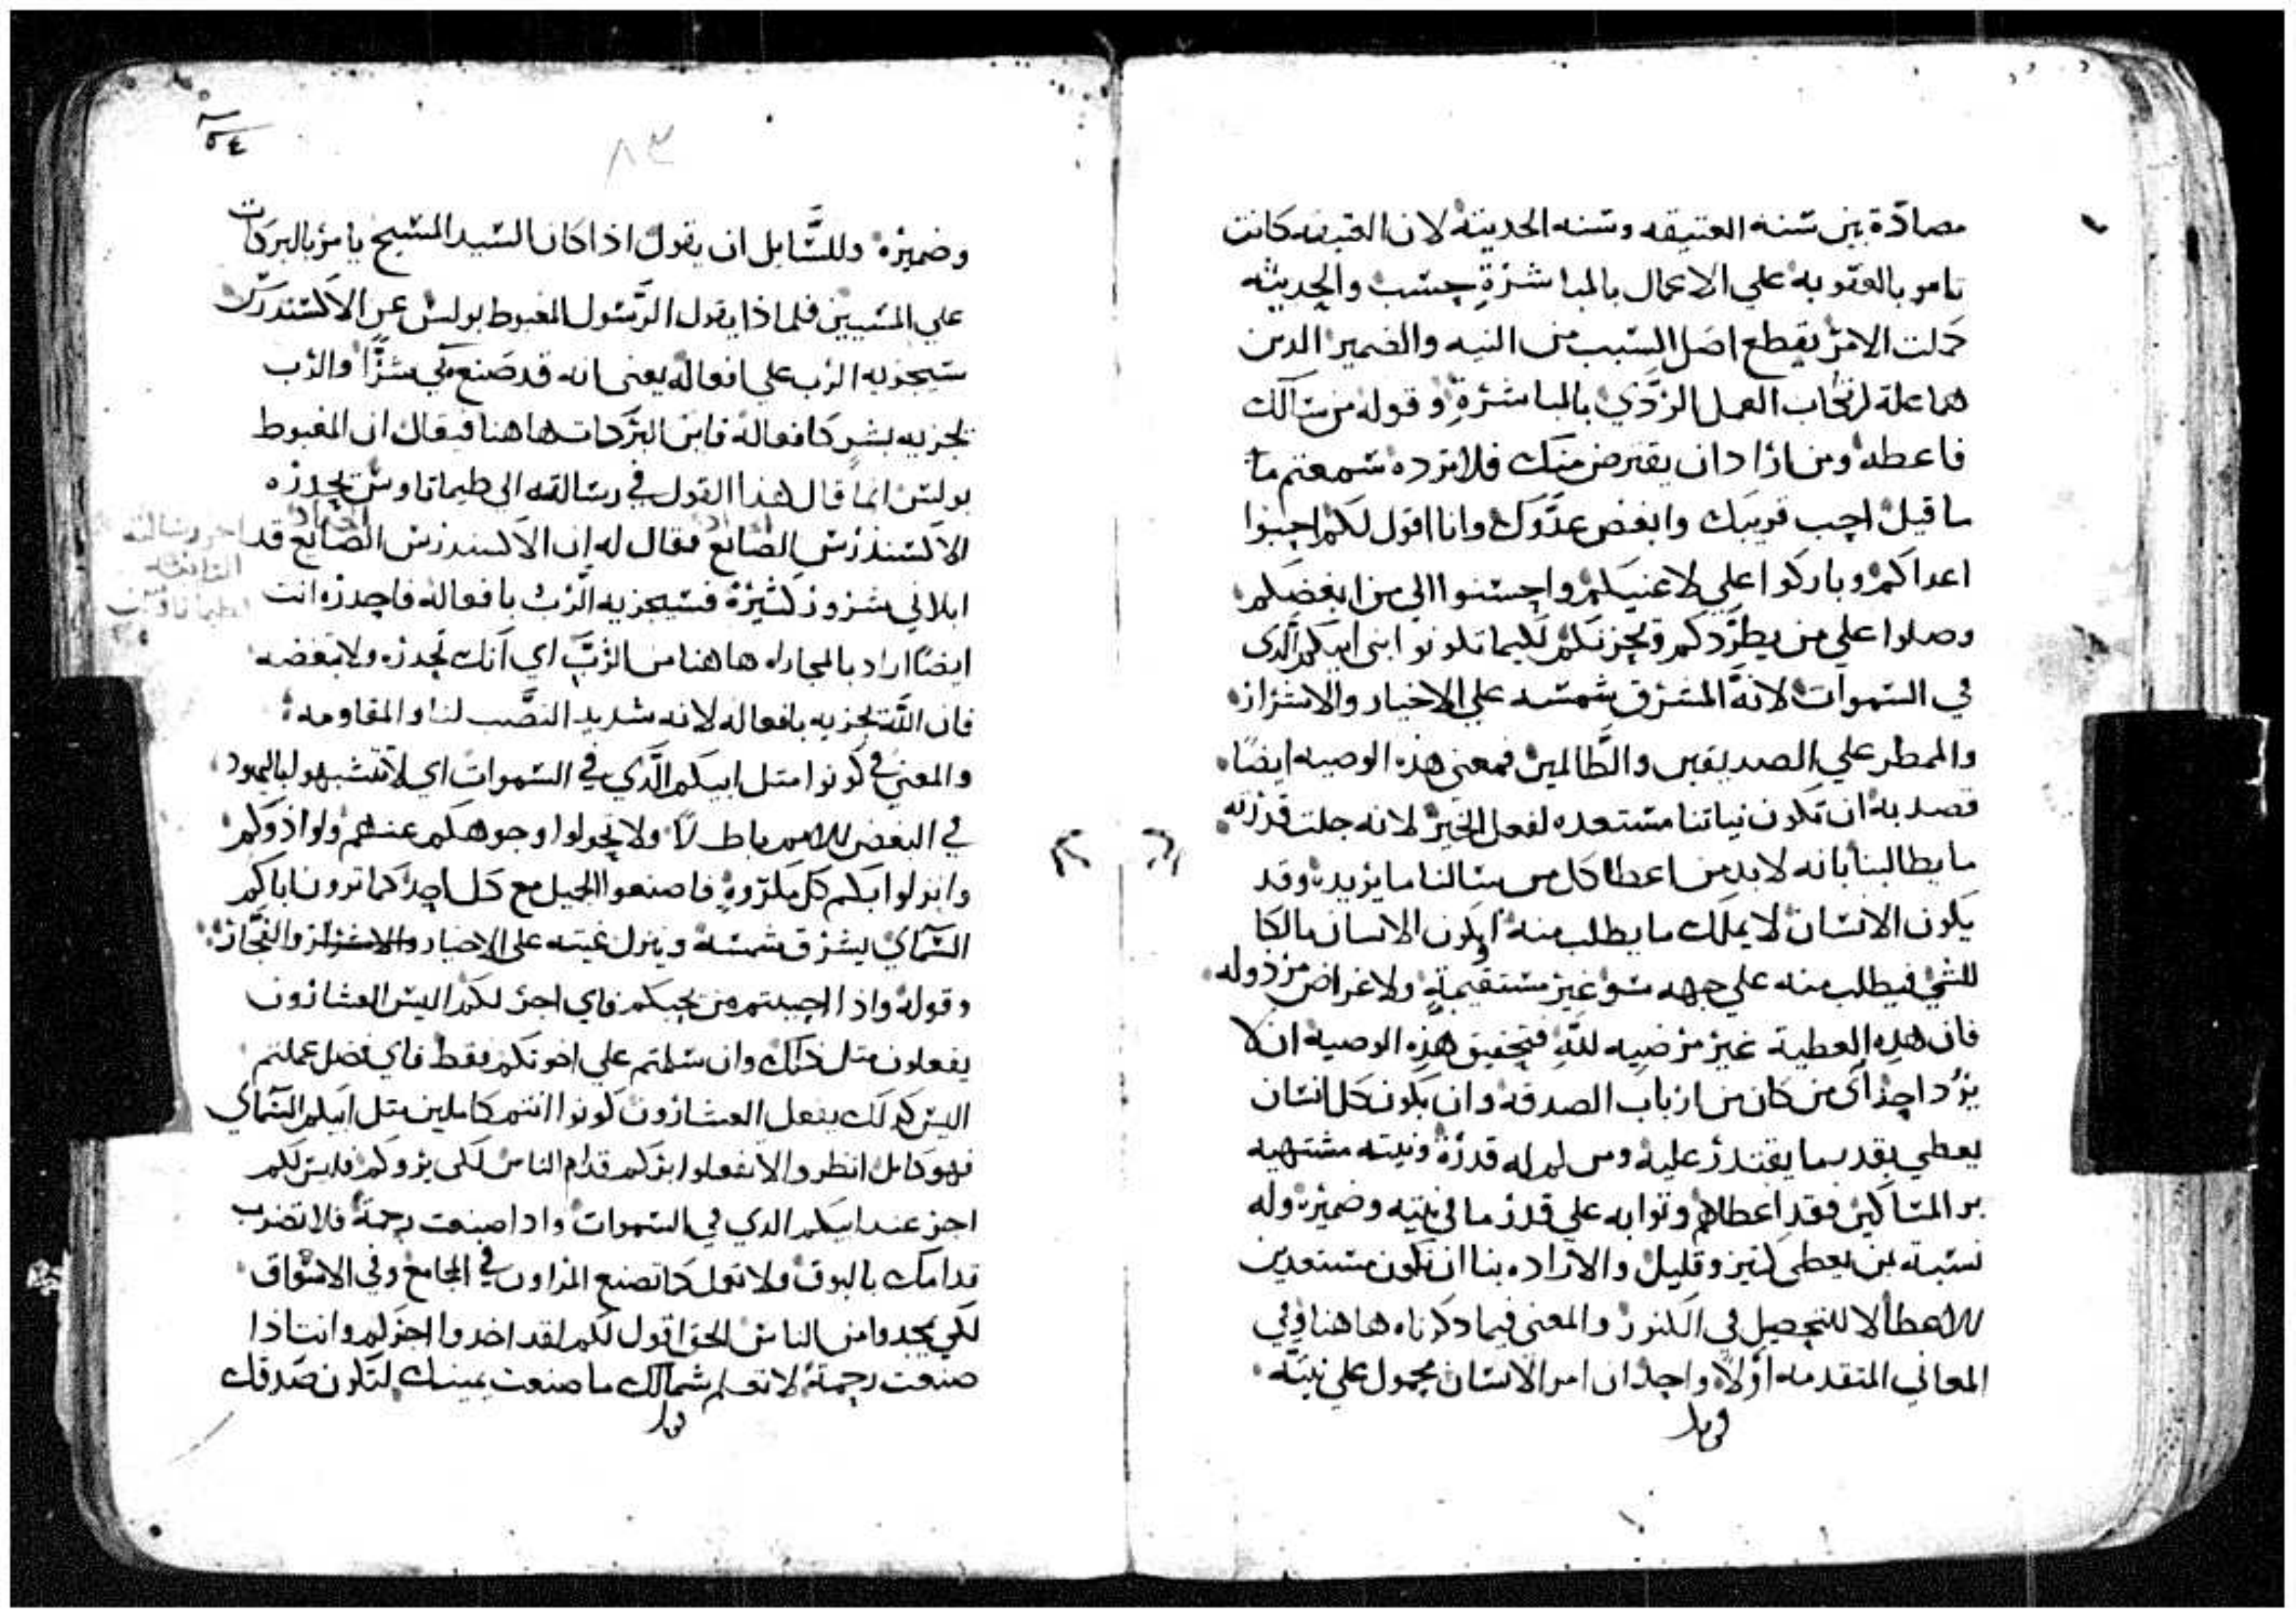 مصادّة بين سنه العتيقه وسنه الحديثة لان العتيقه كانت
تامر بالعقوبه علي الاعمال بالمباشرةِ حسب والحديثه
كملت الامر بقطع اصل السبب من النيه والضمير الدين
هما علة ارتكاب العمل الردّي بالمباشرةِ وقوله من سالك
فاعطه ومن اراد ان يقترض منك فلا ترده سمعتم ما
ما قيل احبب قريبك وابغض عدّوك وانا اقول لكم احبوا
اعداكم وباركوا علي لاعنيكم واحسنوا الي من ابغضكم
وصلوا علي من يطرّدكم ويحزنكم لكيما تكونو ابنى ابيكم الّدى
في السموات لانّهُ المشرق شمسه علي الاخيار والاشرار
والممطر علي الصديقين والظّالمين فمعنى هذه الوصيه ايضًا
قصد به ان تكون نياتنا مستعده لفعل الخير لانه جلت قدرته
ما يطالبنا بانه لابد من اعطا كل من سالنا ما يريده وقد
يكون الانسان لا يملك ما يطلب منه او يكون الانسان مالكا
للشي فيطلب منه علي جهه سو غير مستقيمةٍ ولاغراض مرذوله
فان هذه العطية غير مرضيه للّه فتحقيق هذه الوصيه ان لا
يرُد احد اى من كان من ارباب الصدقه وان يكون كل انسان
يعطي بقدر ما يقتدر عليه ومن لم له قدرة ونيته مشتهيه
بر المساكين فقد اعطاهم وثوابه علي قدر ما في نيته وضميره وله
نسبة بمن يعطى كثير وقليل والاراده بنا ان نكون مستعدين
للاعطا لا للتحصيل في الكنوز والمعنى فيما ذكرناه هاهنا وفي
المعاني المتقدمه اوّلاً واحد ان امر الانسان محمول علي نيّته
٨٣
وضميره وللسّايل ان يقول اذا كان السّيد المسيح يامر بالبركات
علي المسيين فلماذا يقول الرّسول المغبوط بولس عن الاكسندرس
سيجزيه الرب علي افعاله يعنى انه قد صنع بي شرًّا والرب
يجزيه بشرٍ كافعاله فاين البركات هاهنا فيقال ان المغبوط
بولس انما قال هذا القول في رسالته الى طيماتاوس يحدره
الاكسندرس الصّايغ فقال له ان الاكسندرس الصّايغ قد
ابلاني بشرور كثيرة فسيجزيه الرّب بافعاله فاحدره انت
ايضًا اراد بالمجاراه هاهنا من الرّبّ اي انك تحدره ولا تبغضه
فان اللّه يجزيه بافعاله لانه شديد النصّب لنا والمقاومه
والمعنى في كونوا متل ابيكم الّدي في السموات اي لا تتشبهو باليهود
في البغض للامم باطلاً ولا تحولوا وجوهكم عنهم ولو اذوكم
وانزلوا بكم كل مكروهٍ فاصنعوا الجميل مع كل احد كما ترون اباكم
السّماي يشرق شمسه وينزل غيته على الاخيار والاشرار والفجّار
وقوله واذا احببتم من يحبكم فاي اجر لكم اليس العشارون
يفعلون متل ذلك وان سلمتم علي اخوتكم فقط فاي فضل عملتم
اليس كدلك يفعل العشارون كونوا انتم كاملين متل ابيكم السّماي
فهو كامل انظروا لا تفعلوا بركم قدام الناس لكى يروكم فليس لكم
اجر عند ابيكم الدي في السموات واذا صنعت رحمة فلا تضرب
قدامك بالبوق ولا تعمل كما تصنع المراون في المجامع وفي الاسواق
لكي يمجدوا من الناس الحق اقول لكم لقد اخدوا اجرهم وانت اذا
صنعت رحمة لا تعلم شمالك ما صنعت يمينك لتكون صَدقتك